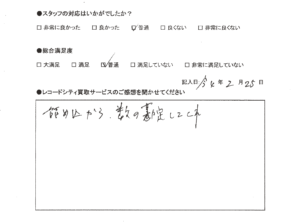 ●スタッフの対応はいかがでしたか?
□ 非常に良かった □ 良かった ☑ 普通 □ 良くない □ 非常に良くない
●総合満足度
□ 大満足 □ 満足 ☑ 普通 □ 満足していない □ 非常に満足していない
記入日 年 2 月 25 日
●レコードシティ買取サービスのご感想を聞かせてください
から、数の勘定してくれ